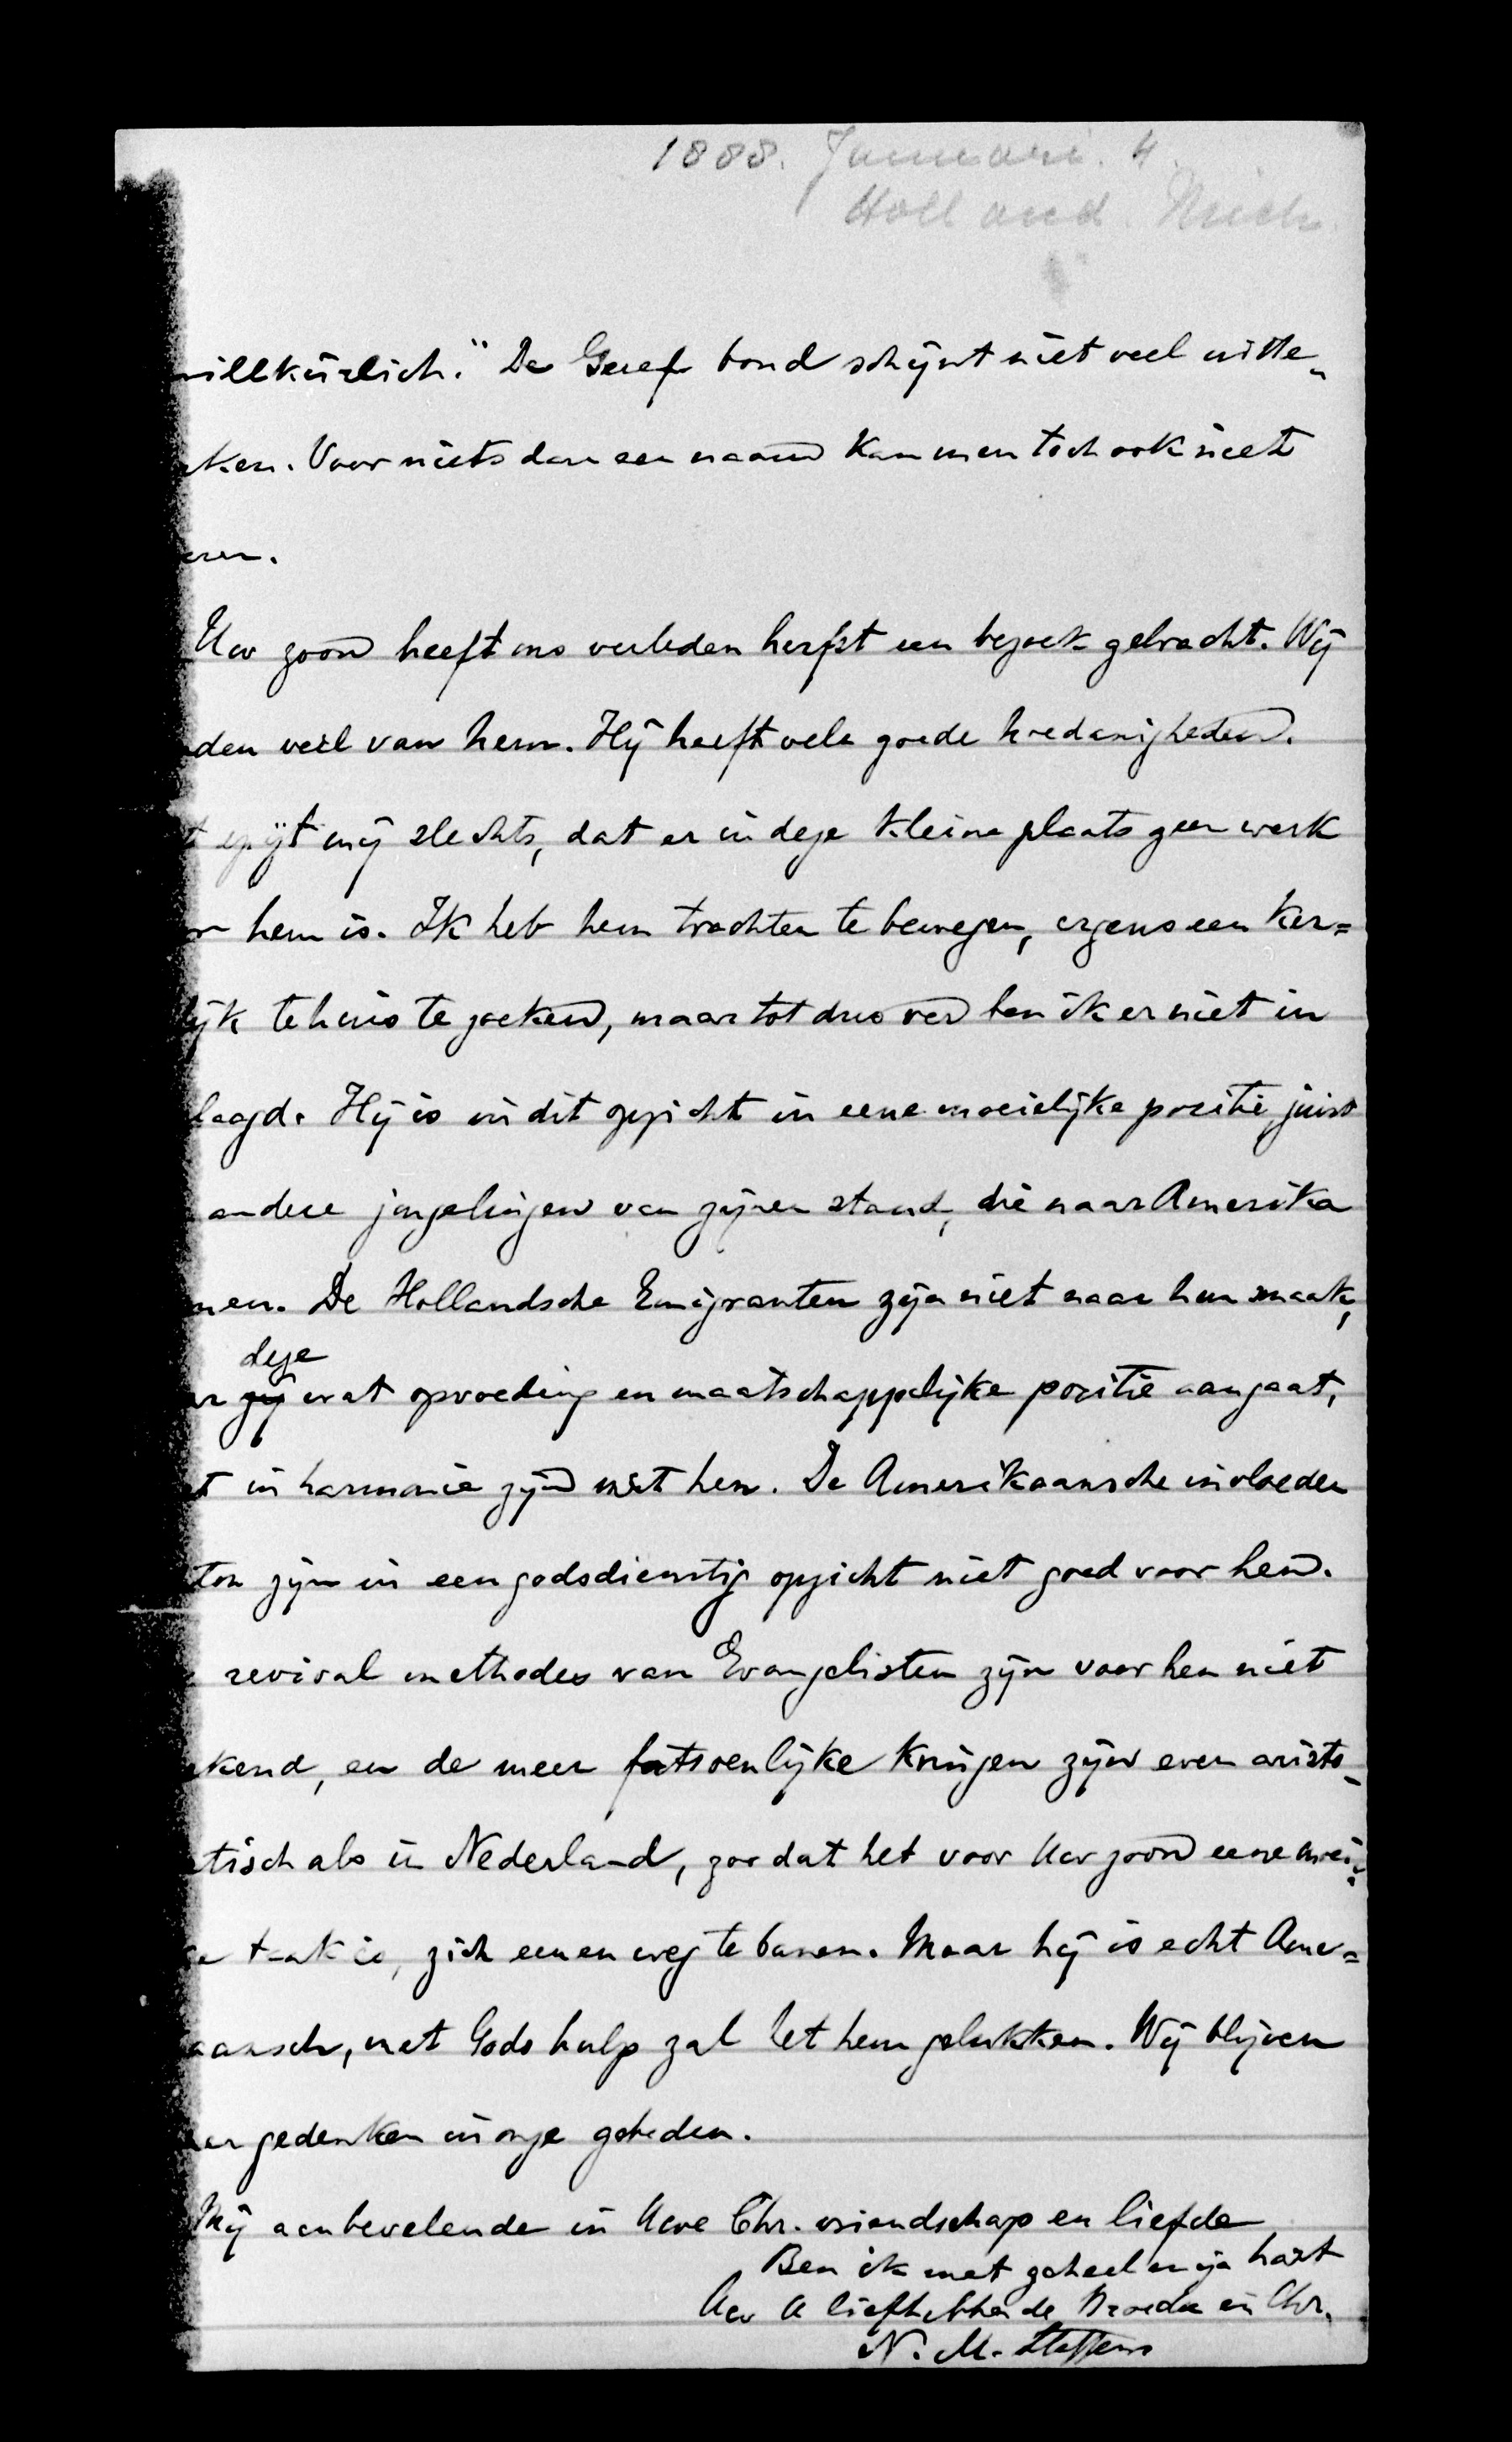 1888. Januari. 4.
Holland. Mich.
willkürlich." De Geref bond schijnt niet veel uitte„
ken. Voor niets dan een naam kan men toch ook niet
eren.
Uw zoon heeft ons verleden herfst een bezoek gebracht. Wij
den veel van hem. Hij heeft vele goede hoedanigheden.
t spijt mij slechts, dat er in deze kleine plaats geen werk
r hem is. Ik heb hem trachten te bewegen, ergens een ker=
lijk tehuis te zoeken, maar tot dus ver ben ik er niet in
laagd. Hij is in dit opzicht in eene moeielijke positie, juist
andere jongelingen van zijnen stand, die naar Amerika
men. De Hollandsche Emigranten zijn niet naar hun smaak,
deze
ar zij wat opvoeding en maatschappelijke positie aangaat,
t in harmonie zijn met hen. De Amerikaansche invloeden
ten zijn in een godsdienstig opzicht niet goed voor hen.
revival methodes van Evangelisten zijn voor hen niet
kend, en de meer fatsoenlijke kringen zijn even aristo-
tisch als in Nederland, zoo dat het voor Uw zoon eene moei=
e taak is, zich eenen weg te banen. Maar hij is echt Ame=
aansch, met Gods hulp zal het hem gelukken. Wij blijven
er gedenken in onze gebeden.
Mij aanbevelende in Uwe Chr. vriendschap en liefde
Ben ik met geheel mijn hart
Uw U liefhebbende Broeder in Chr.
N. M. Steffens